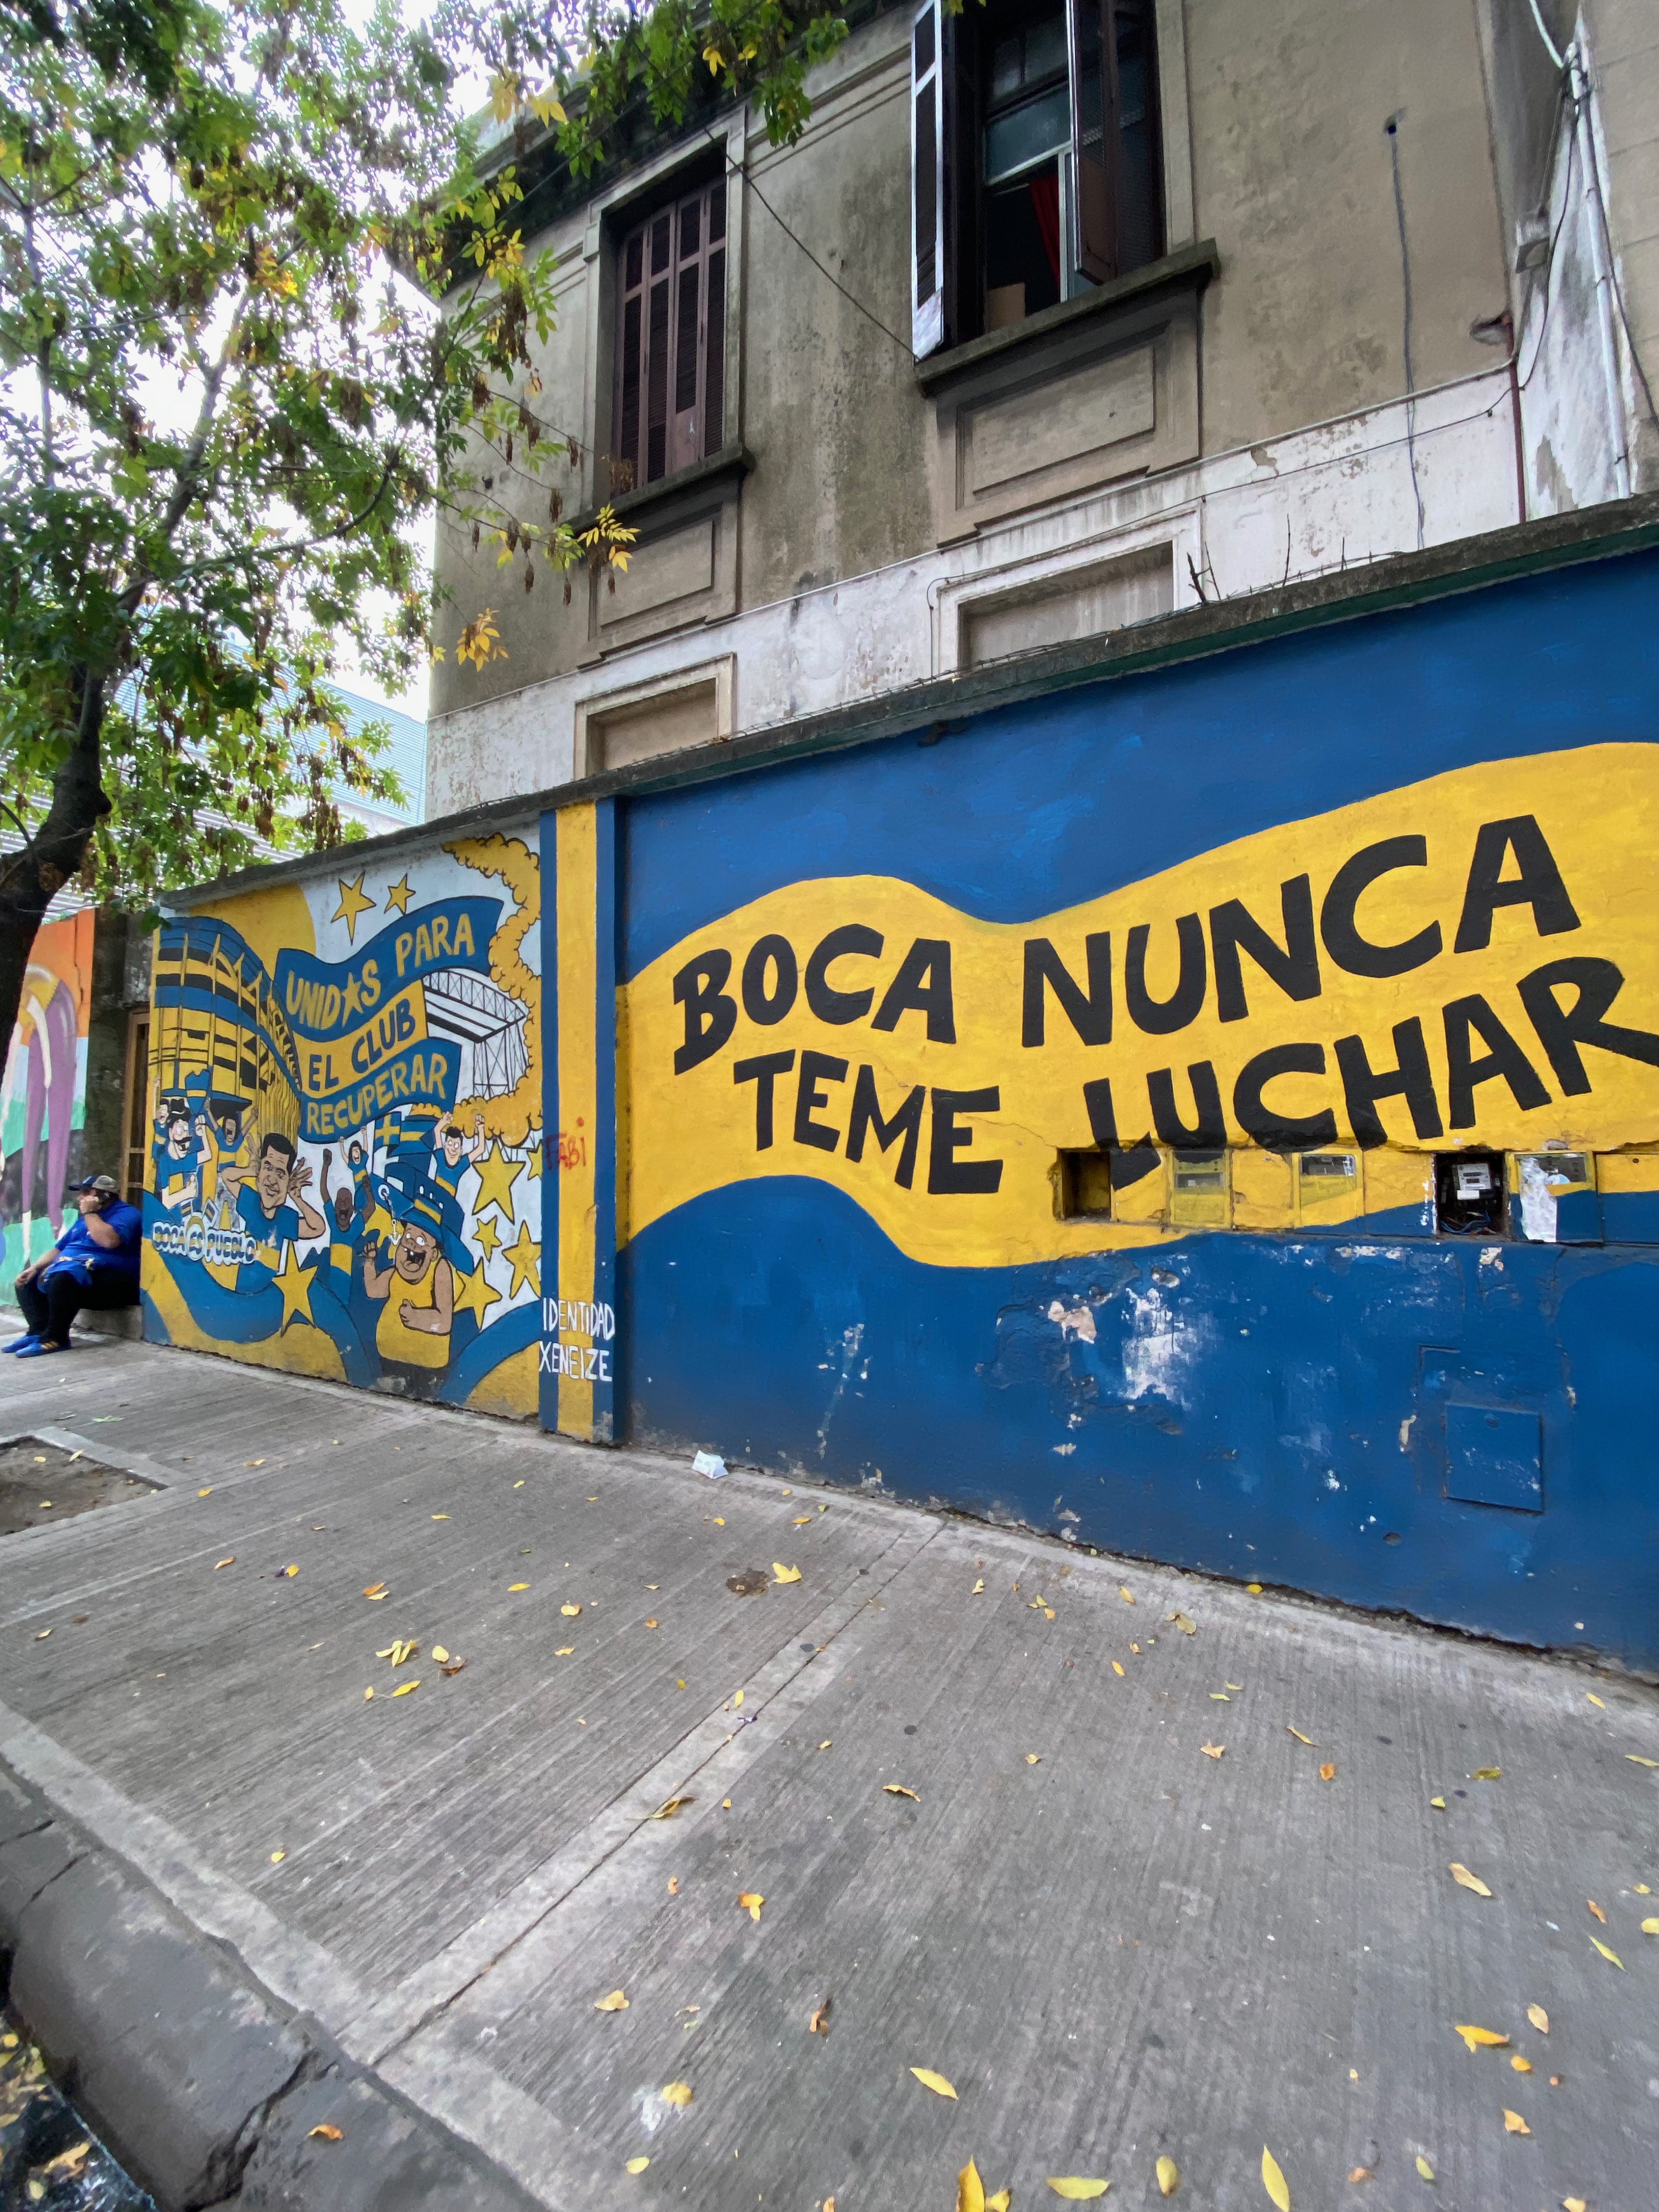 UNID★S PARA
EL CLUB
RECUPERAR
BOCA ES PUEBLO
FABi
IDENTIDAD
XENEIZE
BOCA NUNCA
TEME LUCHAR